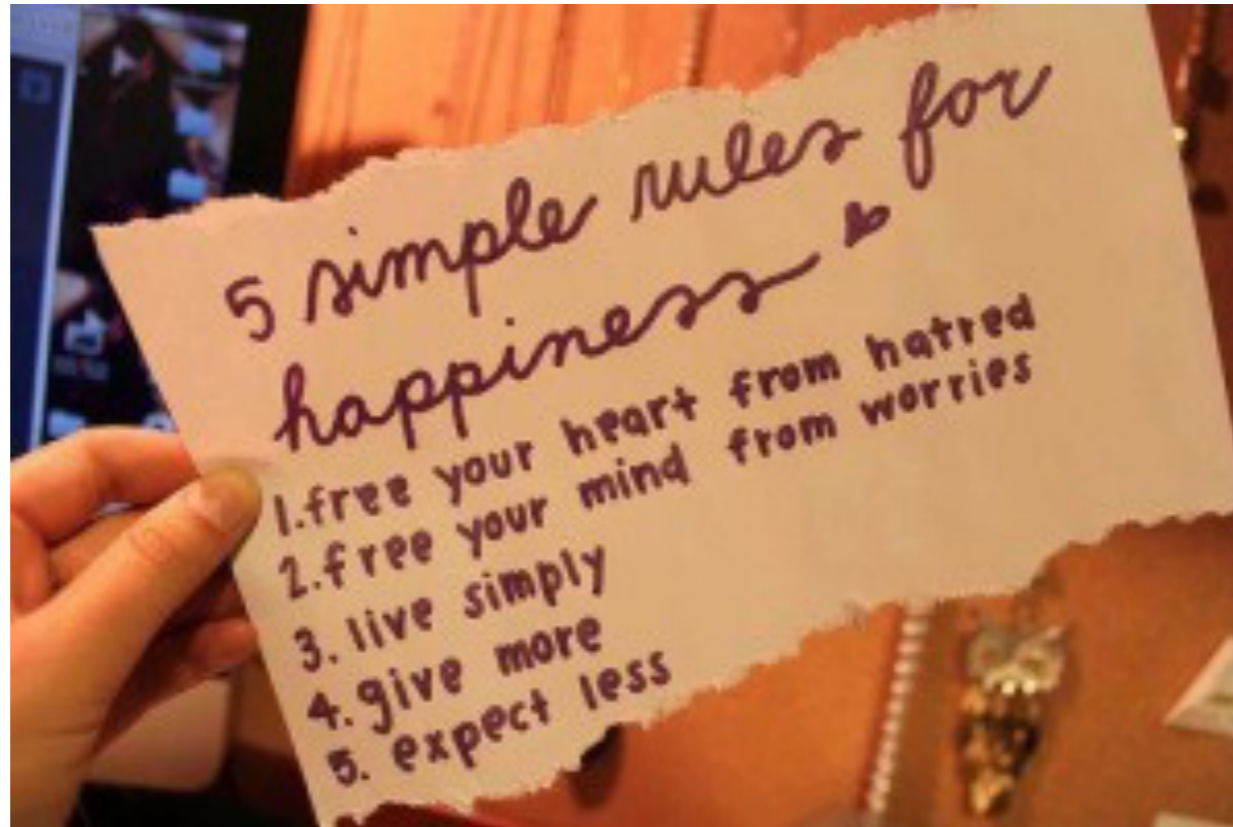 5 simple rules for
happiness
1.free your heart from hatred
2.free your mind from worries
3. live simply
4. give more
5. expect less